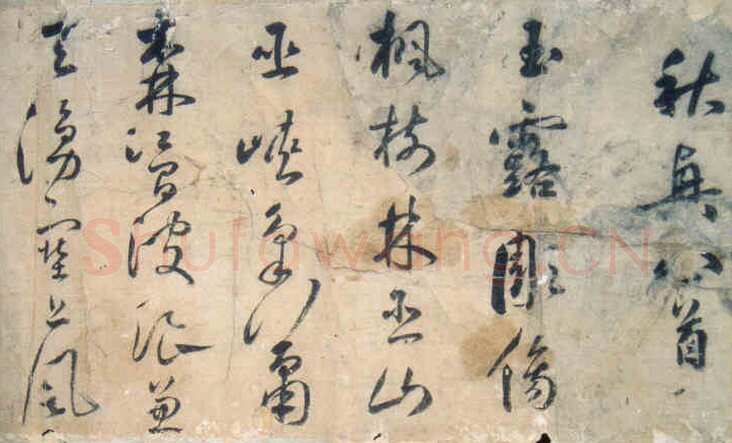 秋興八首
玉露彫傷
楓樹林巫山
巫峽氣蕭
森江間波浪兼
天湧塞上風
Shufawang.CN